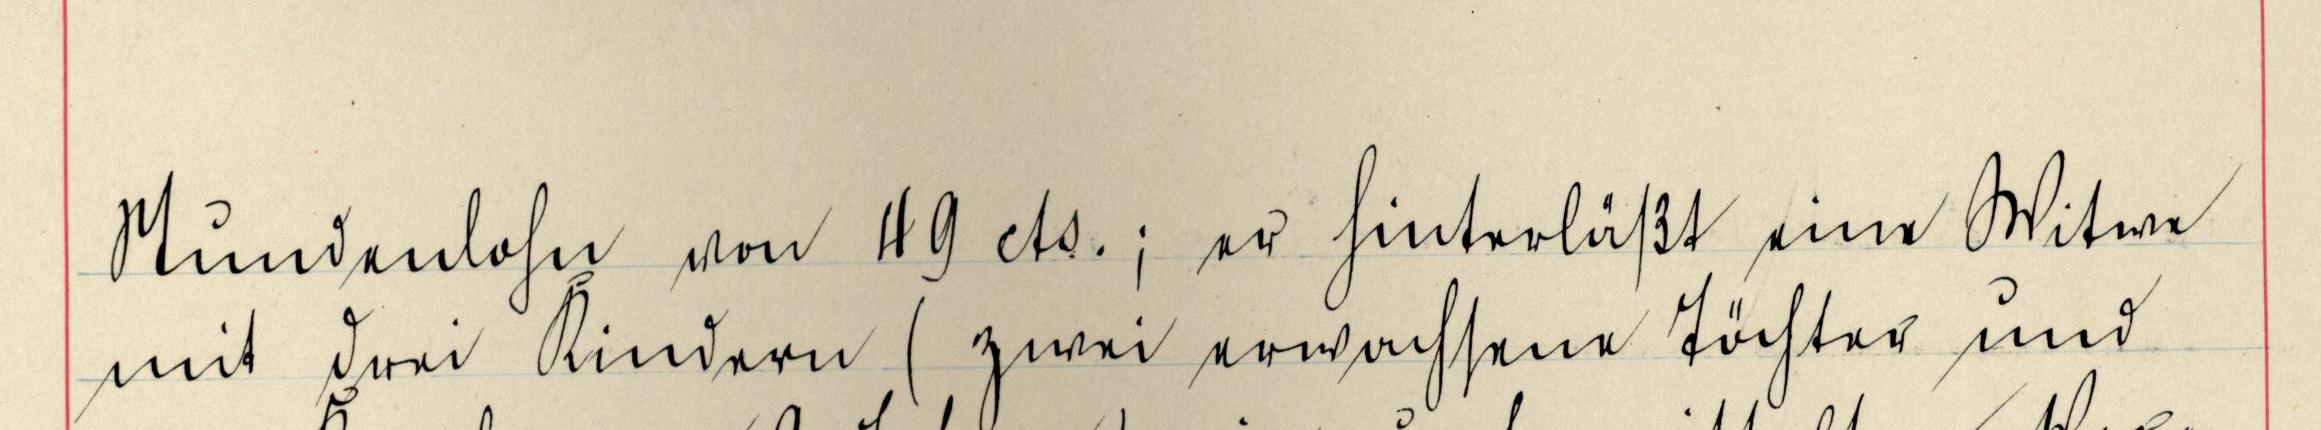 Stundenlohn von 49 cts.; er hinterläßt eine Witwe
mit drei Kindern (zwei erwachsene Töchter und